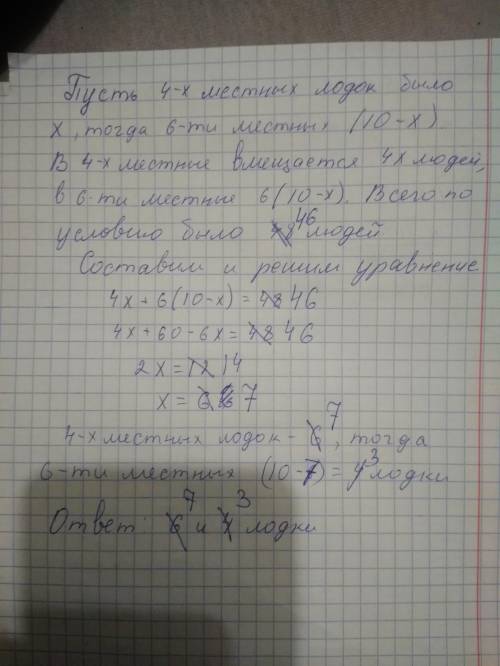 Пусть 4-х местных лодок было
х, тогда 6-ти местных (10-х)
В 4-х местные вмещается 4х людей,
в 6-ти местные 6(10-х). Всего по
условию было 46 людей
Составим и решим уравнение
4х+6(10-х)=48 46
4х+60-6х=48 46
2х=12 14
х=6 7
4-х местных лодок - 6 7, тогда
6-ти местных (10-7)=4 3 лодки
Ответ: 6 7 и 4 3 лодки